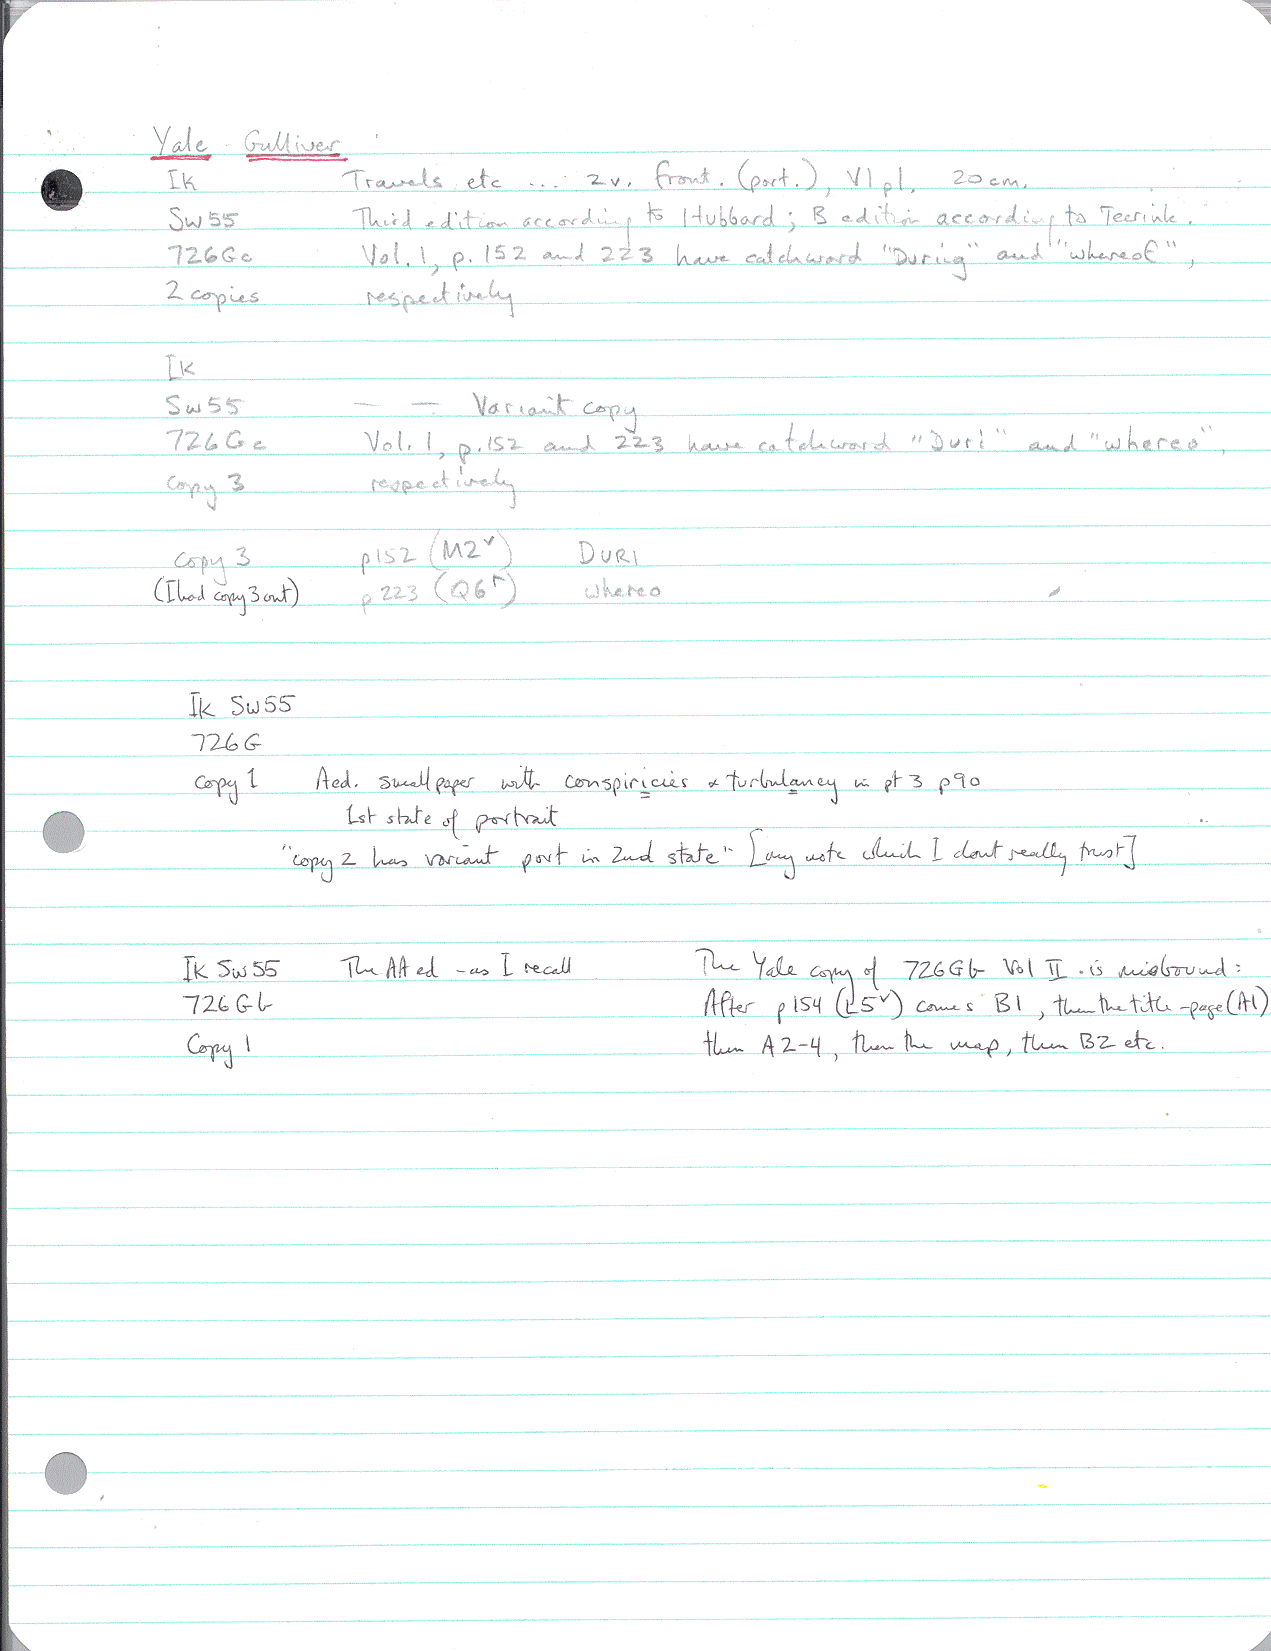 Yale Gulliver
Ik Travels etc ... 2v. front. (port.), VI pl. 20cm.
Sw55 Third edition according to Hubbard; B edition according to Teerink.
726Gc Vol. 1, p. 152 and 223 have catchword "During" and "whereof",
2 copies respectively
Ik
Sw55 — — Variant copy
726Gc Vol. 1, p.152 and 223 have catchword "Duri" and "whereo",
copy 3 respectively
Copy 3 p152 (M2v) DURI
(I had copy 3 out) p223 (Q6r) whereo
Ik Sw55
726G
Copy 1 A ed. small paper with conspiricies & turbulancy in pt 3 p90
1st state of portrait
"copy 2 has variant port in 2nd state" [my note which I dont really trust]
Ik Sw55 The AA ed - as I recall The Yale copy of 726Gb Vol II is misbound:
726Gb After p154 (L5v) comes B1, then the title-page (A1)
Copy 1 then A2-4, then the map, then B2 etc.